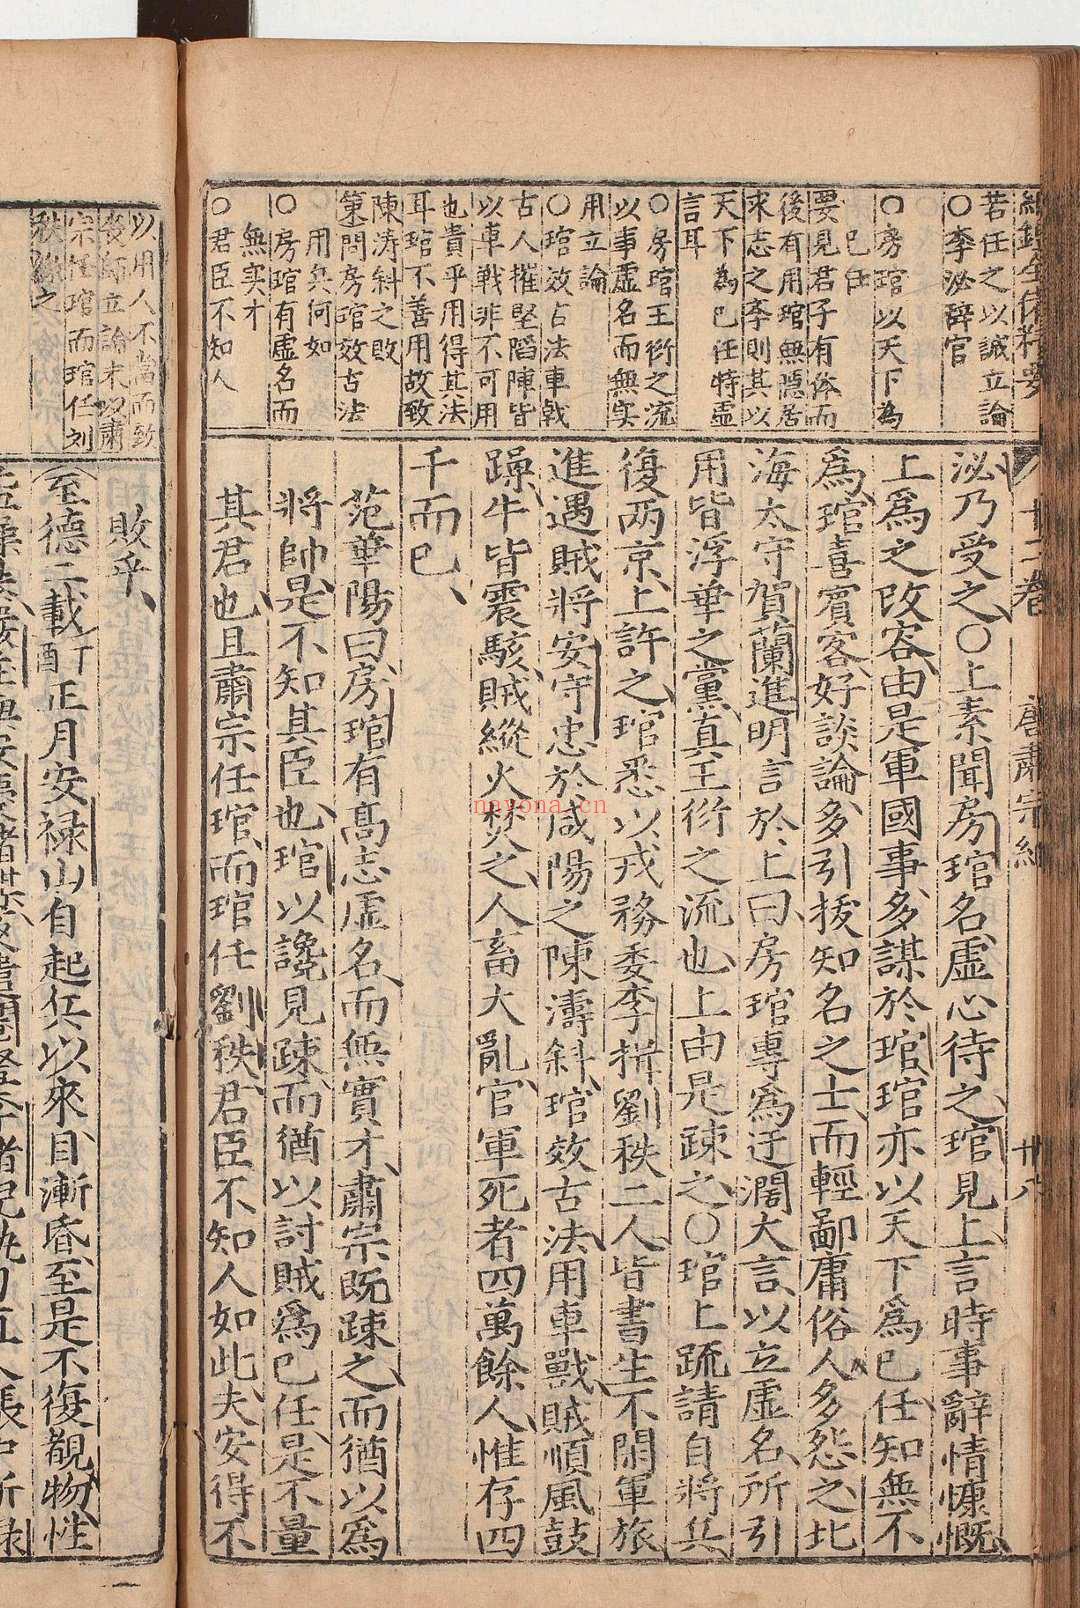 若任之以誠立論
○李泌辭官
○房琯以天下為
己任
要見君子有体而
後有用琯無隱居
求志之李則其以
天下為己任特虛
言耳
○房琯王衍之流
以事虛名而無实
用立論
○琯效古法車戰
古人摧堅陷陣皆
以車戰非不可用
也貴乎用得其法
耳琯不善用故致
陳涛斜之敗
策問房琯效古法
用兵何如
○房琯有虛名而
無实才
○君臣不知人
廿二卷
唐肅宗紀
廿八
泌乃受之○上素聞房琯名虛心待之琯見上言時事辭情慷慨
上為之改容由是軍國事多謀於琯琯亦以天下為己任知無不
為琯喜賓客好談論多引拔知名之士而輕鄙庸俗人多怨之北
海太守賀蘭進明言於上曰房琯專為迂闊大言以立虛名所引
用皆浮華之黨真王衍之流也上由是踈之○琯上疏請自將兵
復两京上許之琯悉以戎務委李揖劉秩二人皆書生不閑軍旅
進遇賊將安守忠於咸陽之陳濤斜琯效古法用車戰賊順風鼓
躁牛皆震駭賊縱火焚之人畜大亂官軍死者四萬餘人惟存四
千而已
范華陽曰房琯有高志虛名而無實才肅宗既踈之而猶以為
將帥是不知其臣也琯以讒見踈而猶以討賊為己任是不量
其君也且肅宗任琯而琯任劉秩君臣不知人如此夫安得不
以用人不當而致
宗任琯而琯任刘
敗乎
至德二載丁酉正月安禄山自起兵以來目漸昏至是不復覩物性